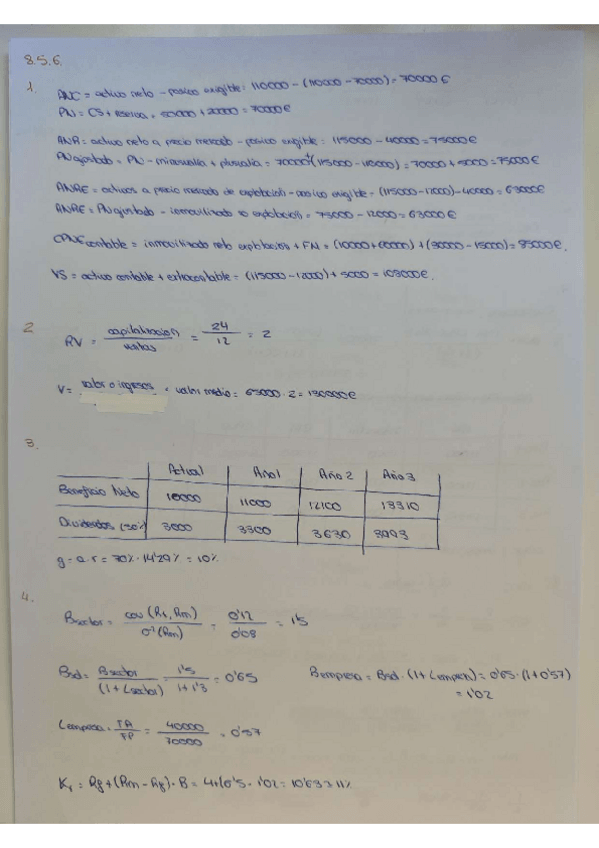 8.5.6.
1. ANC = activo neto - pasivo exigible: 110000 - (110000 - 70000) = 70000 €
PN = CS + reserva = 50000 + 20000 = 70000 €
ANR = activo neto a precio mercado - pasivo exigible: 115000 - 40000 = 75000 €
PN ajustado = PN - minusvalía + plusvalía = 70000 + (115000 - 110000) = 70000 + 5000 = 75000 €
ANRE = activos a precio mercado de explotación - pasivo exigible = (115000 - 12000) - 40000 = 63000 €
ANRE = PN ajustado - inmovilizado no explotación = 75000 - 12000 = 63000 €
CPNE contable = inmovilizado neto explotación + FN = (10000 + 60000) + (30000 - 15000) = 85000 €.
VS = activo contable + extracontable = (115000 - 12000) + 5000 = 108000 €.
2. RV = capitalización / ventas = 24 / 12 = 2
V = valor o ingresos = valor medio = 65000 · 2 = 130000 €
3.
Actual Año 1 Año 2 Año 3
Beneficio Neto 10000 11000 12100 13310
Dividendos (30%) 3000 3300 3630 3993
g = a · r = 70% · 14'29% = 10%
4.
Bsector = cov (Ri, Rm) / σ² (Rm) = 0'12 / 0'08 = 1'5
Bsd = Bsector / (1 + Lsector) = 1'5 / 1 + 1'3 = 0'65 Bempresa = Bsd · (1 + Lempresa) = 0'65 · (1 + 0'57)
= 1'02
Lempresa = / = 40000 / 70000 = 0'57
Kr = Rf + (Rm - Rf) · B = 4 + 6'5 · 1'02 = 10'63311%